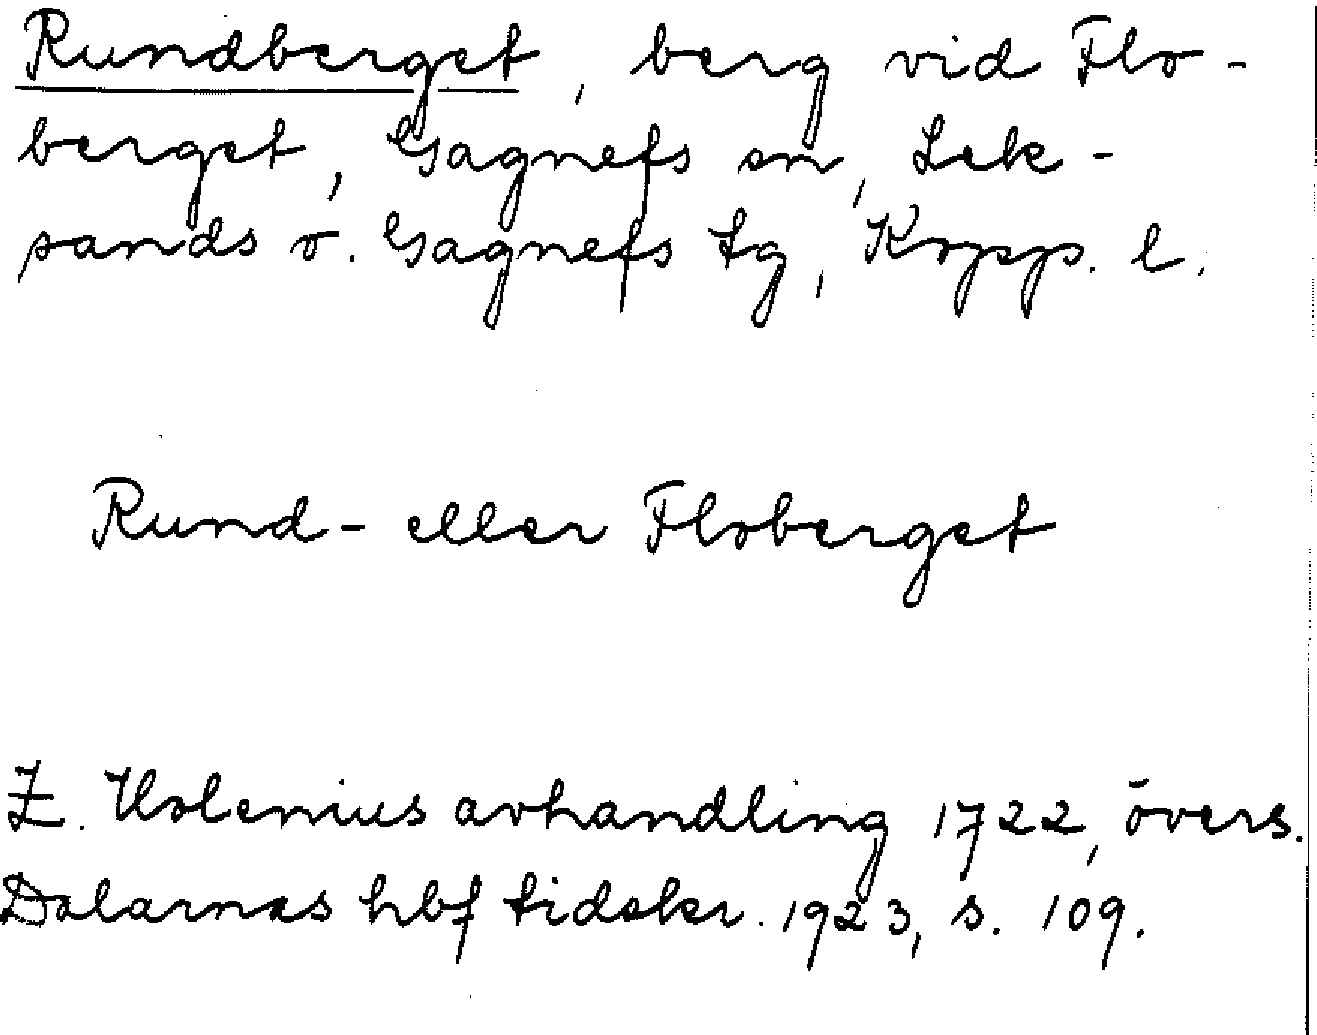 Rundberget, berg vid Flo-
berget, Gagnefs sn, Lek-
sands o. Gagnefs tg, Kopp. l.
Rund- eller Floberget
Z. Holenius avhandling 1722, övers.
Dalarnas hbf tidskr. 1923, s. 109.